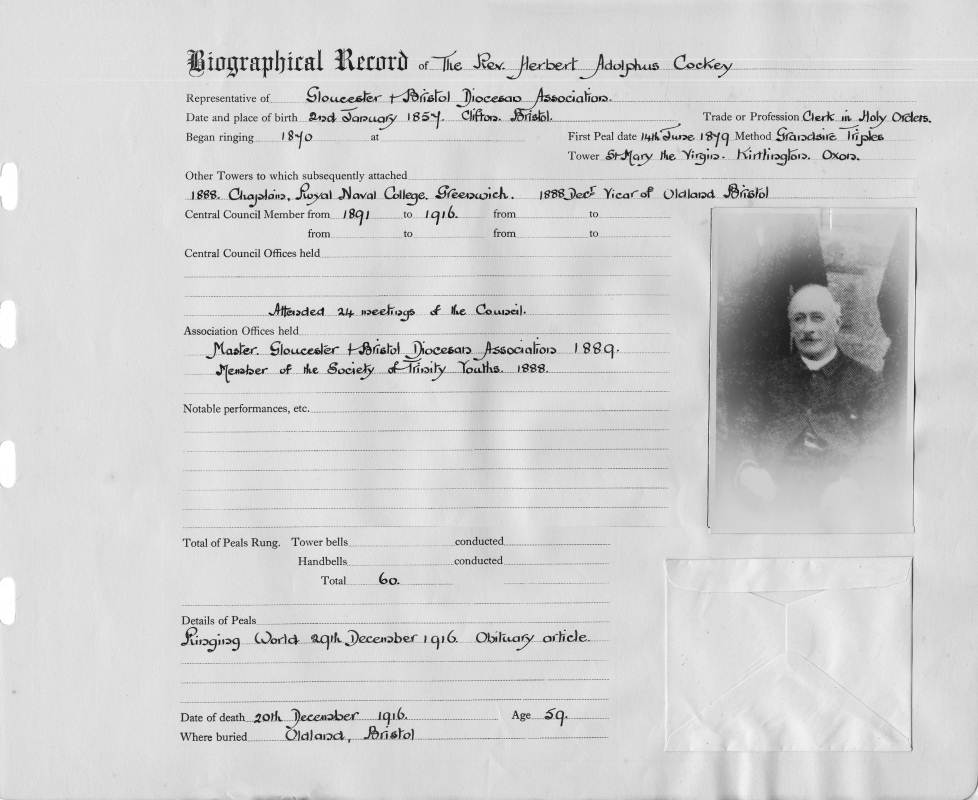 Biographical Record of The Rev. Herbert Adolphus Cockey
Representative of Gloucester & Bristol Diocesan Association.
Date and place of birth 2nd January 1857. Clifton. Bristol. Trade or Profession Clerk in Holy Orders.
Began ringing 1870 at First Peal date 14th June 1879 Method Grandsire Triples
Tower St Mary the Virgin. Kirtlington. Oxon.
Other Towers to which subsequently attached
1888. Chaplain, Royal Naval College. Greenwich. 1888 Decr Vicar of Oldland Bristol
Central Council Member from 1891 to 1916. from to
from to from to
Central Council Offices held
Attended 24 meetings of the Council.
Association Offices held
Master. Gloucester & Bristol Diocesan Association 1889.
Member of the Society of Trinity Youths. 1888.
Notable performances, etc.
Total of Peals Rung. Tower bells conducted
Handbells conducted
Total 60.
Details of Peals
Ringing World 29th December 1916. Obituary article.
Date of death 20th December 1916. Age 59.
Where buried Oldland, Bristol